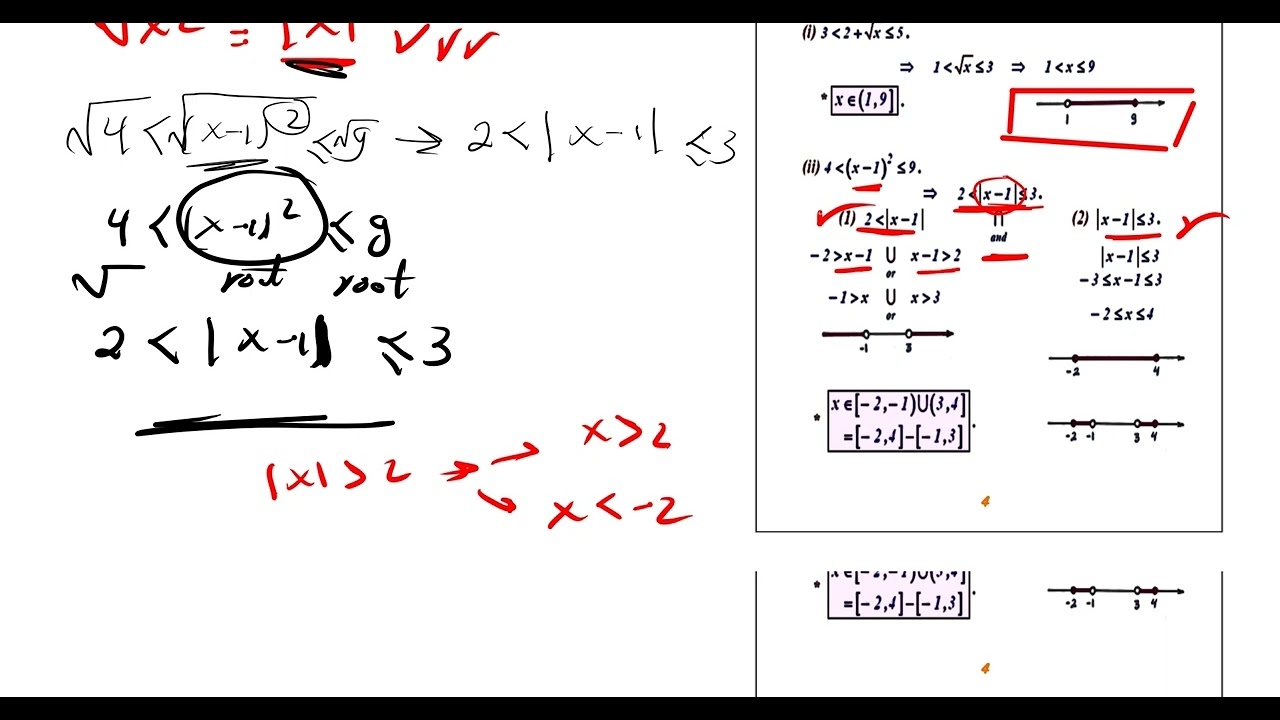 √x2 = |x|
√4 < √(x-1)² ≤ √9 → 2 < |x-1| ≤ 3
4 < (x-1)² ≤ 9
√ root root
2 < |x-1| ≤ 3
|x| > 2 → x > 2
→ x < -2
(i) 3 < 2 + √x ≤ 5.
⇒ 1 < √x ≤ 3 ⇒ 1 < x ≤ 9
* x ∈ (1, 9] .
1 9
(ii) 4 < (x-1)² ≤ 9.
⇒ 2 < |x-1| ≤ 3.
(1) 2 < |x-1| ∩ and (2) |x-1| ≤ 3.
-2 > x-1 ∪ or x-1 > 2
|x-1| ≤ 3
-3 ≤ x-1 ≤ 3
-1 > x ∪ or x > 3
-2 ≤ x ≤ 4
-1 3
-2 4
* x ∈ [-2, -1) ∪ (3, 4]
= [-2, 4] - [-1, 3] .
-2 -1 3 4
4
* x ∈ [-2, -1) ∪ (3, 4]
= [-2, 4] - [-1, 3] .
-2 -1 3 4
4